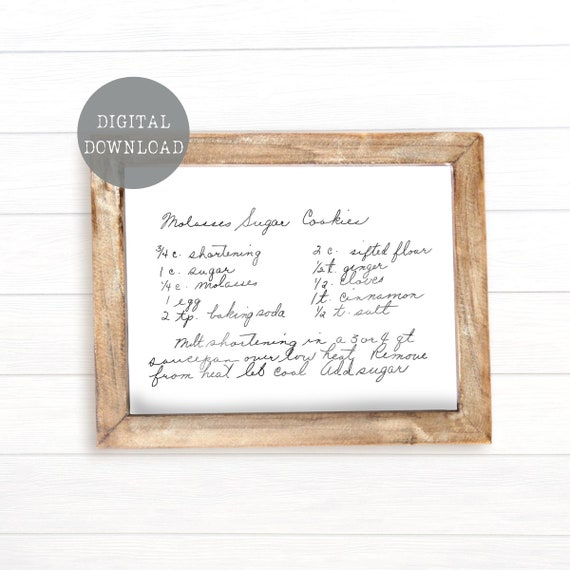 DIGITAL
DOWNLOAD
Molasses Sugar Cookies
3/4 c. shortening
1 c. sugar
1/4 c. molasses
1 egg
2 tsp. baking soda
2 c. sifted flour
1/2 t. ginger
1/2 . cloves
1 t. cinnamon
1/2 t. salt
Melt shortening in a 3 or 4 qt
saucepan over low heat. Remove
from heat let cool Add sugar